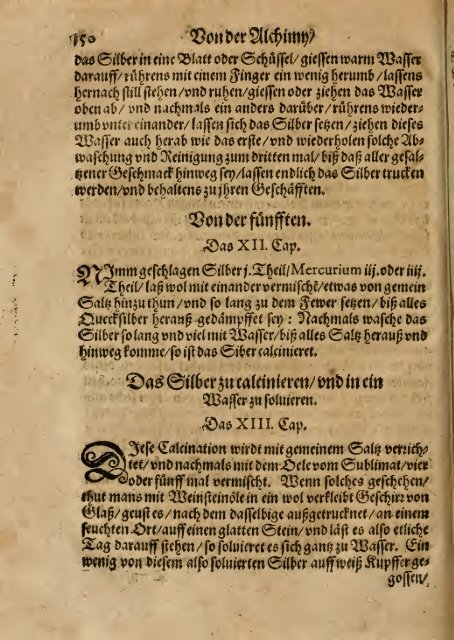 150 Von der Alchimy/
das Silber in eine Blatt oder Schüssel/giessen warm Wasser
darauff/rührens mit einem Finger ein wenig herumb/lassens
hernach still stehen/vnd ruhen/giessen oder ziehen das Wasser
oben ab/vnd nachmals ein anders darüber/rührens wieder-
umb vnter einander/lassen sich das Silber setzen/ziehen dieses
Wasser auch herab wie das erste/vnd wiederholen solche Ab-
waschung vnd Reinigung zum dritten mal/biß daß aller gesal-
tzener Geschmack hinweg sey/lassen endlich das Silber trucken
werden/vnd behaltens zu jhren Geschäfften.
Von der fünfften.
Das XII. Cap.
NImm geschlagen Silber j. Theil/Mercurium iij. oder iiij.
Theil/laß wol mit einander vermischt/etwas von gemein
Saltz hinzu thun/vnd so lang zu dem Fewer setzen/biß alles
Quecksilber herauß gedämpffet sey: Nachmals wasche das
Silber so lang vnd viel mit Wasser/biß alles Saltz herauß vnd
hinweg komme/so ist das Siber calcinieret.
Das Silber zu calcinieren/vnd in ein
Wasser zu soluieren.
Das XIII. Cap.
DIese Calcination wirdt mit gemeinem Saltz verrich-
tet/vnd nachmals mit dem Oele vom Sublimat/vier
oder fünff mal vermischt. Wenn solches geschehen/
thut mans mit Weinsteinöle in ein wol verkleibt Geschirr von
Glaß/geust es/nach dem dasselbige außgetrucknet/an einem
feuchten Ort/auff einen glatten Stein/vnd läst es also etliche
Tag darauff stehen/so soluieret es sich gantz zu Wasser. Ein
wenig von diesem also soluierten Silber auff weiß Kupffer ge-
gossen/